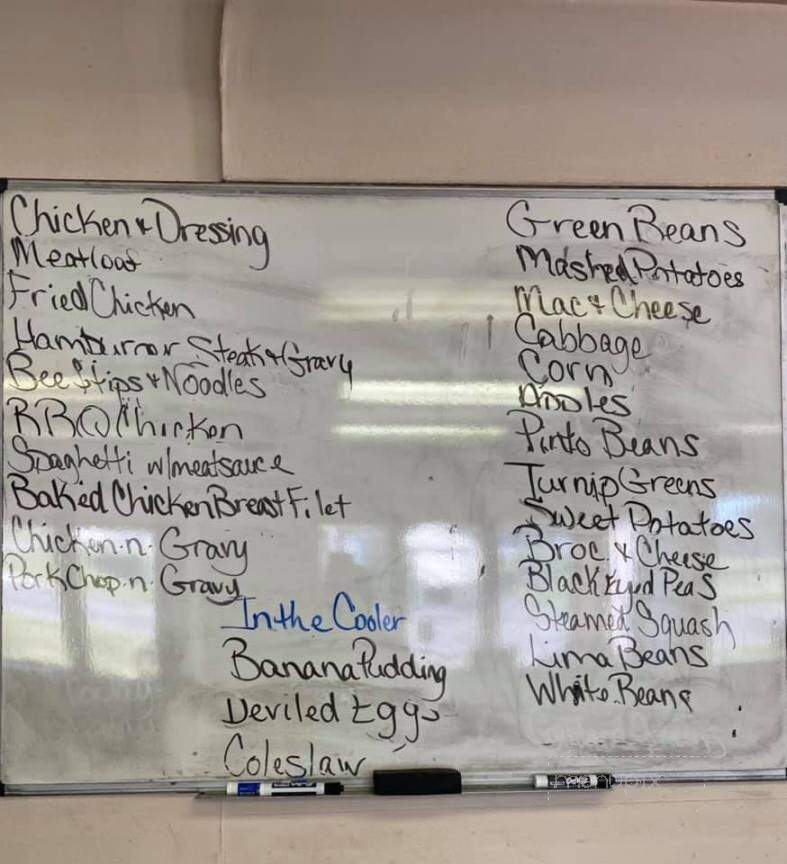 Chicken & Dressing
Meatloaf
Fried Chicken
Hamburger Steak & Gravy
Beef tips & Noodles
BBQ Chicken
Spaghetti w/meatsauce
Baked Chicken Breast Filet
Chicken n Gravy
Pork Chop n Gravy
In the Cooler
Banana Pudding
Deviled Eggs
Coleslaw
Green Beans
Mashed Potatoes
Mac & Cheese
Cabbage
Corn
Apples
Pinto Beans
Turnip Greens
Sweet Potatoes
Broc & Cheese
Black Eyed Peas
Steamed Squash
Lima Beans
White Beans
menupix